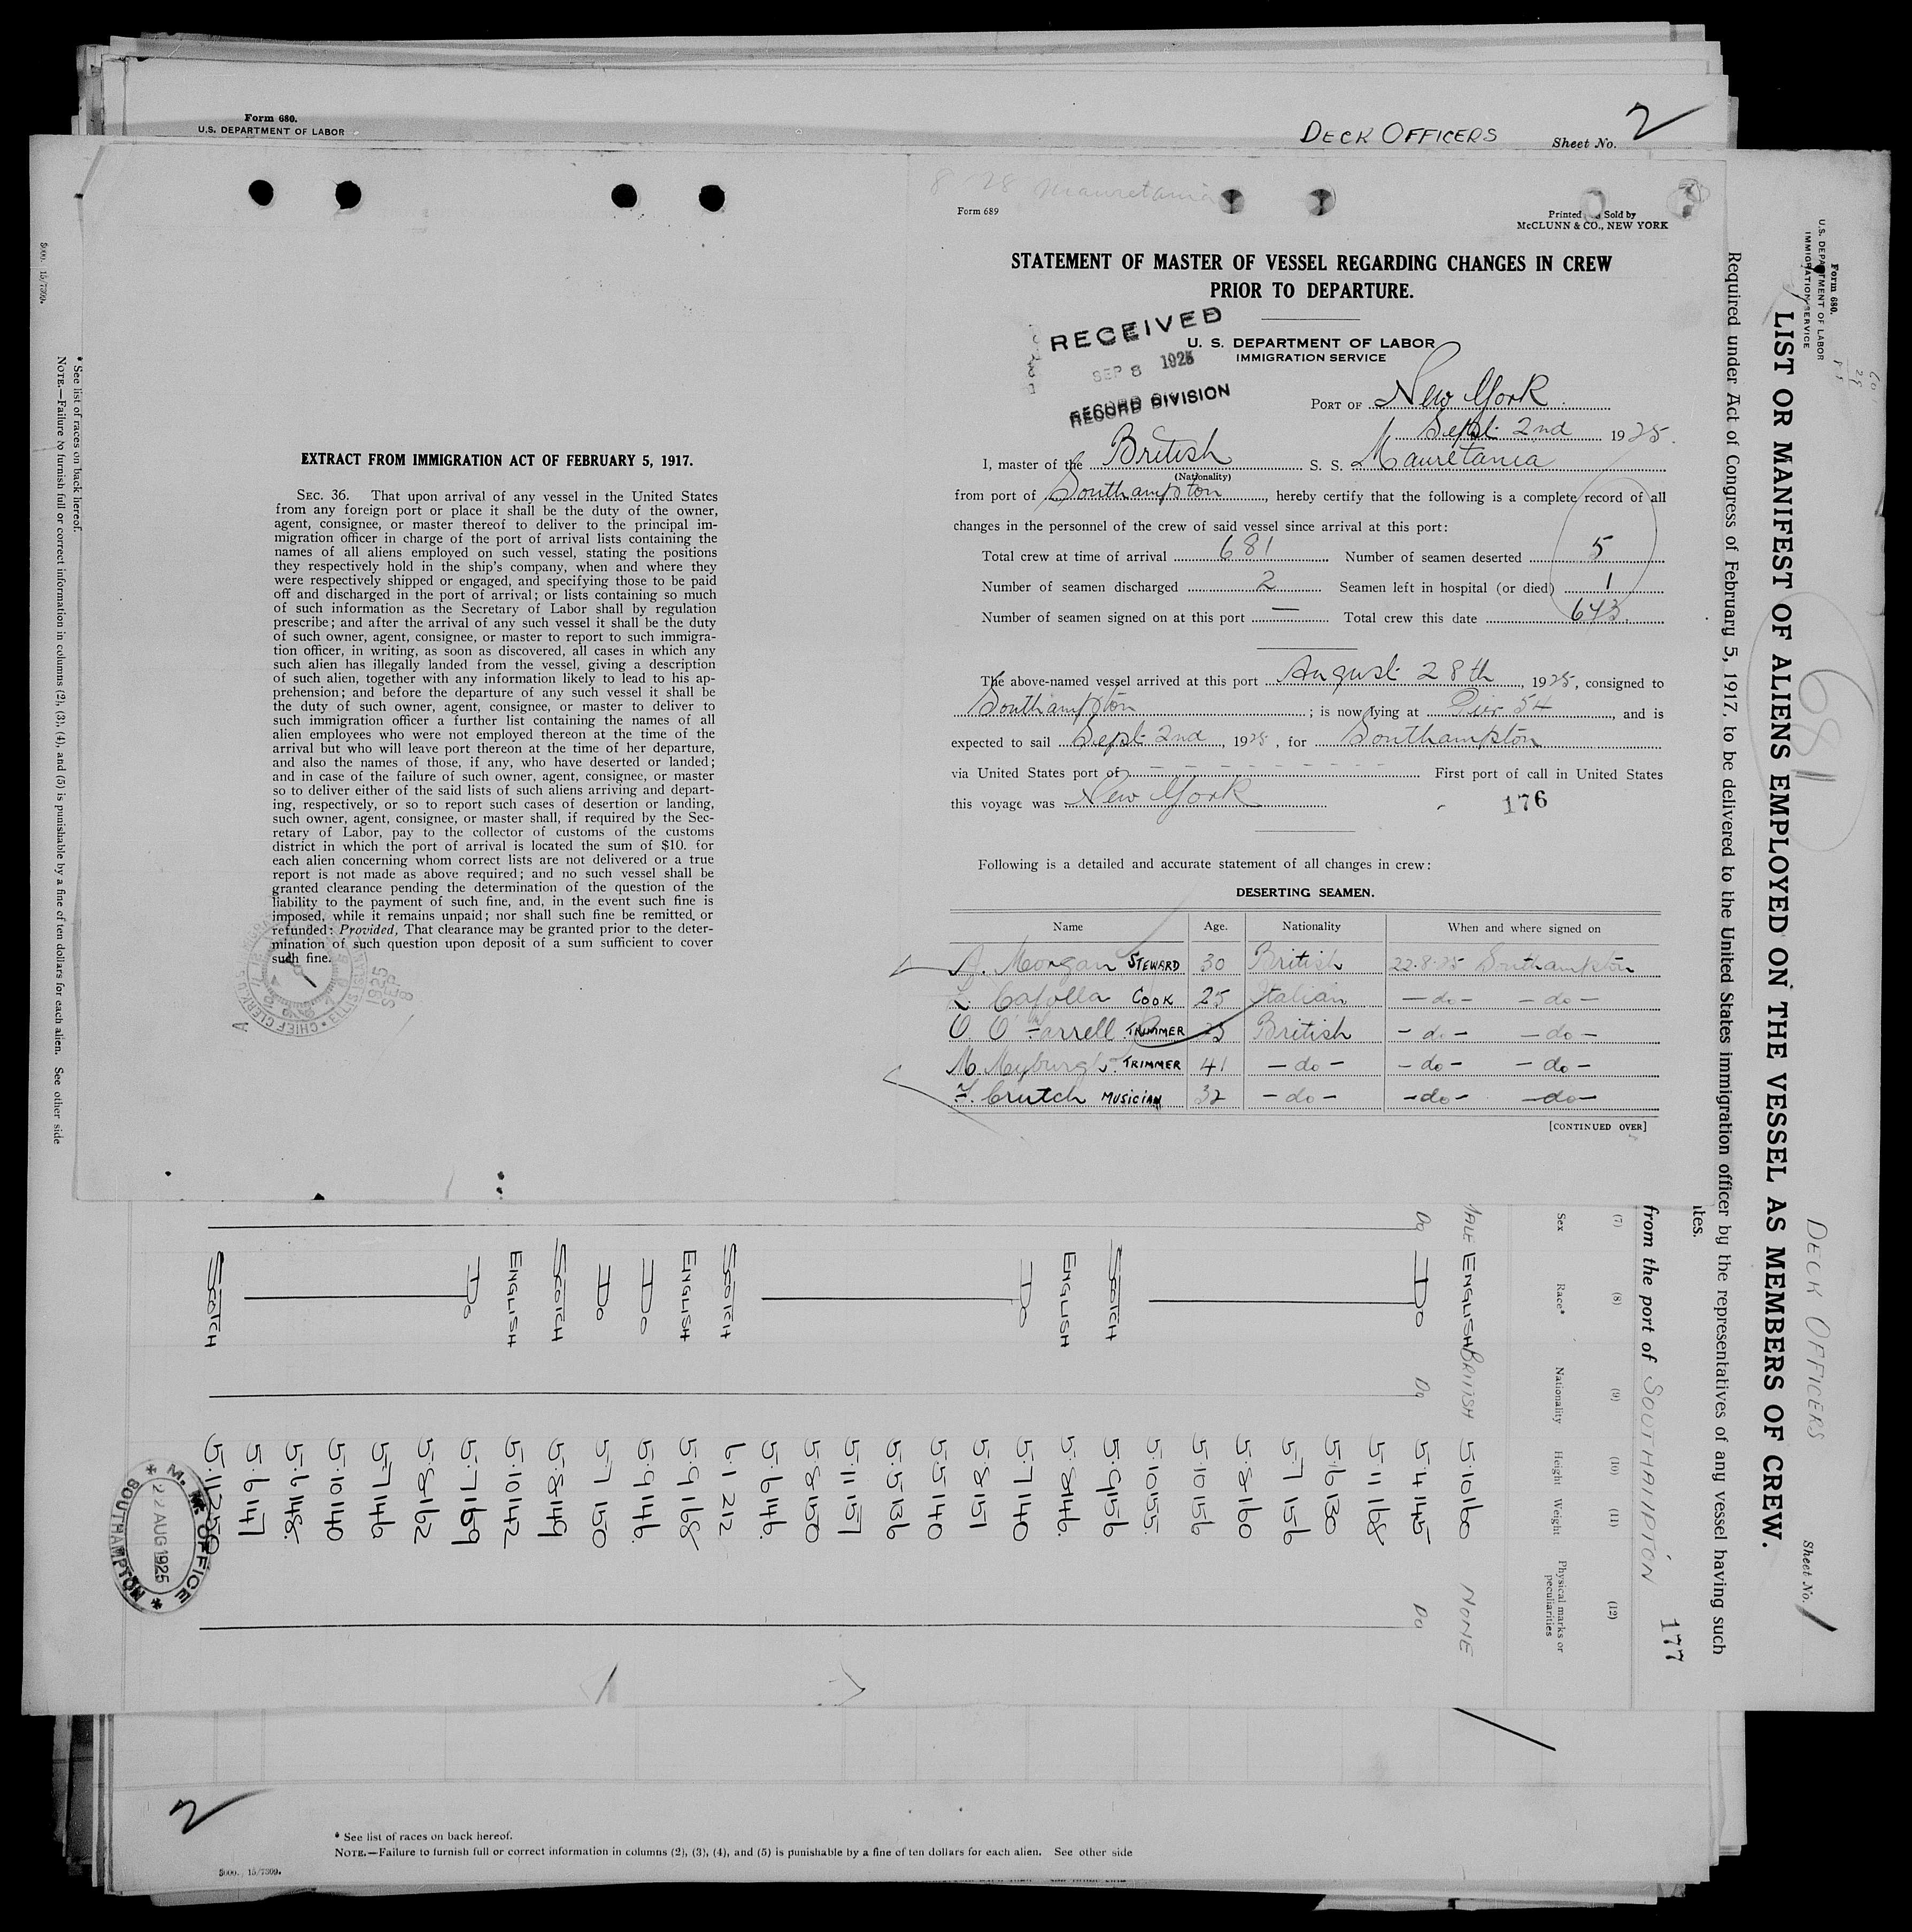 Form 680.
U.S. DEPARTMENT OF LABOR
DECK OFFICERS Sheet No. 2
8 28 Mauretania
Form 689
Printed Sold by
McCLUNN & CO., NEW YORK
STATEMENT OF MASTER OF VESSEL REGARDING CHANGES IN CREW
PRIOR TO DEPARTURE.
RECEIVED
SEP 8 1925
RECORD DIVISION
U. S. DEPARTMENT OF LABOR
IMMIGRATION SERVICE
PORT OF New York
Sept. 2nd 1925.
I, master of the British S. S. Mauretania
(Nationality)
from port of Southampton, hereby certify that the following is a complete record of all
changes in the personnel of the crew of said vessel since arrival at this port:
Total crew at time of arrival 681 Number of seamen deserted 5
Number of seamen discharged 2 Seamen left in hospital (or died) 1
Number of seamen signed on at this port — Total crew this date 643.
The above-named vessel arrived at this port August 28th, 1925, consigned to
Southampton; is now lying at Pier 54, and is
expected to sail Sept. 2nd, 1925, for Southampton
via United States port of – – – – – – – – – First port of call in United States
this voyage was New York
176
Following is a detailed and accurate statement of all changes in crew:
DESERTING SEAMEN.
Name Age. Nationality When and where signed on
A. Morgan STEWARD 30 British 22-8-25 Southampton
L. Capolla COOK 25 Italian – do – – do –
TRIMMER British – do – – do –
M. Myburgh TRIMMER 41 – do – – do – – do –
F. Crutch MUSICIAN 32 – do – – do – – do –
[CONTINUED OVER]
EXTRACT FROM IMMIGRATION ACT OF FEBRUARY 5, 1917.
SEC. 36. That upon arrival of any vessel in the United States
from any foreign port or place it shall be the duty of the owner,
agent, consignee, or master thereof to deliver to the principal im-
migration officer in charge of the port of arrival lists containing the
names of all aliens employed on such vessel, stating the positions
they respectively hold in the ship's company, when and where they
were respectively shipped or engaged, and specifying those to be paid
off and discharged in the port of arrival; or lists containing so much
of such information as the Secretary of Labor shall by regulation
prescribe; and after the arrival of any such vessel it shall be the duty
of such owner, agent, consignee, or master to report to such immigra-
tion officer, in writing, as soon as discovered, all cases in which any
such alien has illegally landed from the vessel, giving a description
of such alien, together with any information likely to lead to his ap-
prehension; and before the departure of any such vessel it shall be
the duty of such owner, agent, consignee, or master to deliver to
such immigration officer a further list containing the names of all
alien employees who were not employed thereon at the time of the
arrival but who will leave port thereon at the time of her departure,
and also the names of those, if any, who have deserted or landed;
and in case of the failure of such owner, agent, consignee, or master
so to deliver either of the said lists of such aliens arriving and depart-
ing, respectively, or so to report such cases of desertion or landing,
such owner, agent, consignee, or master shall, if required by the Sec-
retary of Labor, pay to the collector of customs of the customs
district in which the port of arrival is located the sum of $10. for
each alien concerning whom correct lists are not delivered or a true
report is not made as above required; and no such vessel shall be
granted clearance pending the determination of the question of the
liability to the payment of such fine, and, in the event such fine is
imposed, while it remains unpaid; nor shall such fine be remitted or
refunded: Provided, That clearance may be granted prior to the deter-
mination of such question upon deposit of a sum sufficient to cover
such fine.
CHIEF CLERK
ELLIS ISLAND
1925
SEP
8
Form 680.
U.S. DEPARTMENT OF LABOR
IMMIGRATION SERVICE
DECK OFFICERS
Sheet No. 1
681
LIST OR MANIFEST OF ALIENS EMPLOYED ON THE VESSEL AS MEMBERS OF CREW.
Required under Act of Congress of February 5, 1917, to be delivered to the United States immigration officer by the representatives of any vessel having such
ites.
177
from the port of SOUTHAMPTON
(7) (8) (9) (10) (11) (12)
Sex Race* Nationality Height Weight Physical marks or peculiarities
MALE ENGLISH BRITISH 5·10 160 NONE
Do Do Do 5·4 145 Do
5·11 168
5·6 130
5·7 156
5·8 160
5·10 156
5·10 155
SCOTCH 5·9 156
ENGLISH 5·8 146
Do 5·7 140
5·8 151
5·5 140
5·5 136
5·11 157
5·8 150
5·6 146
SCOTCH 6·1 212
ENGLISH 5·9 168
Do 5·9 146
Do 5·7 150
SCOTCH 5·8 149
ENGLISH 5·10 142
Do 5·7 169
5·8 162
5·7 146
5·10 140
5·6 148
5·6 147
SCOTCH 5·11
M. M. OFFICE
22 AUG 1925
SOUTHAMPTON
* See list of races on back hereof.
NOTE.—Failure to furnish full or correct information in columns (2), (3), (4), and (5) is punishable by a fine of ten dollars for each alien. See other side
5000. 15/7309.
2
* See list of races on back hereof.
NOTE.—Failure to furnish full or correct information in columns (2), (3), (4), and (5) is punishable by a fine of ten dollars for each alien. See other side
5000. 15/7309.